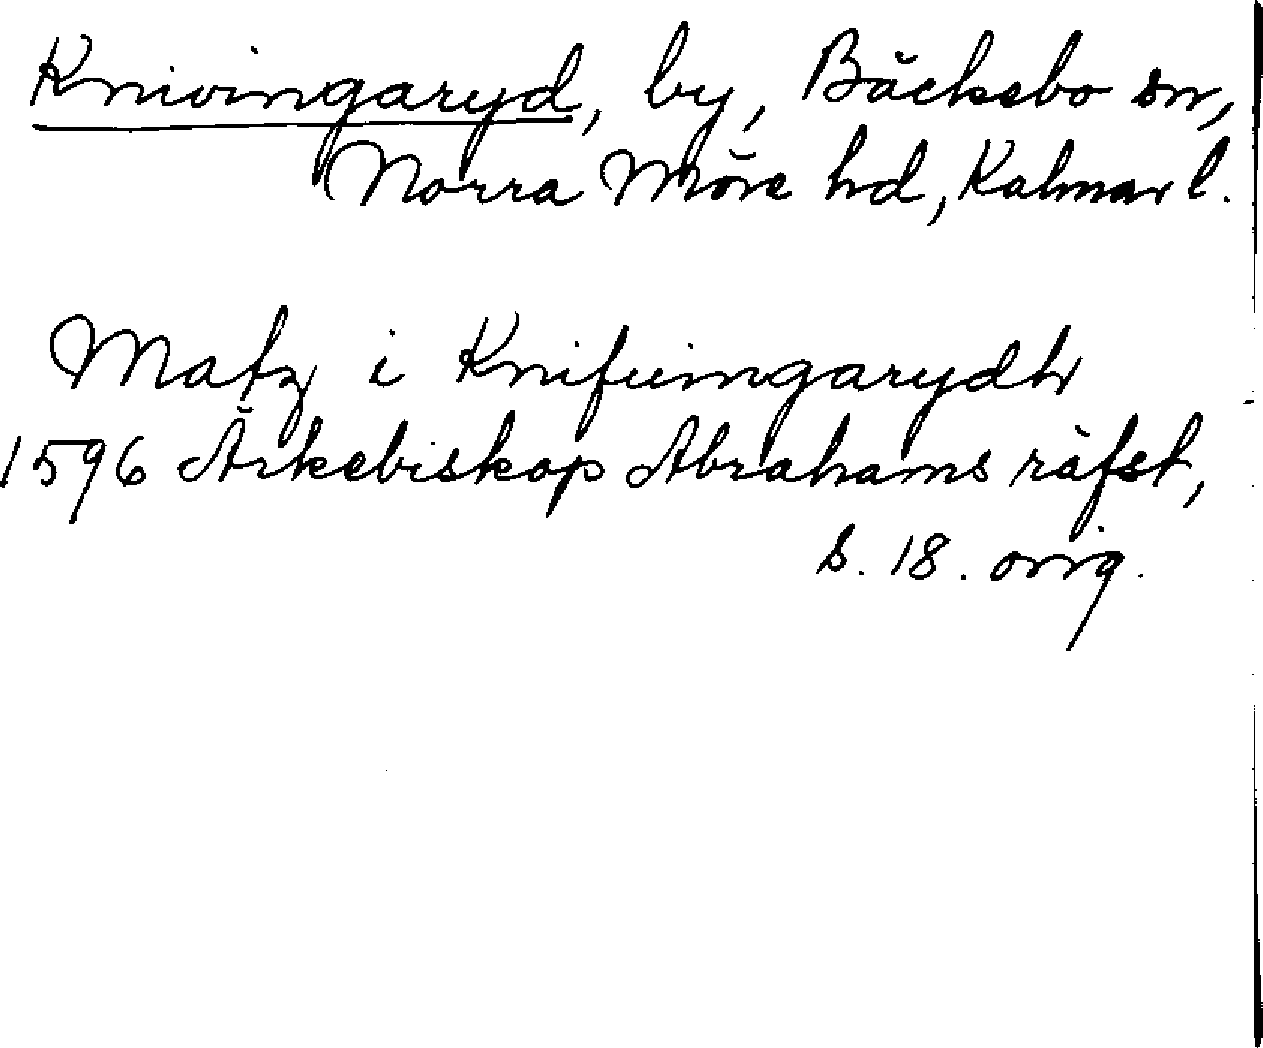 Knivingaryd, by, Bäckebo sn,
Norra Möre hd, Kalmar l.
Matz i Knifuingarydh
1596 Ärkebiskop Abrahams räfst,
s. 18. orig.